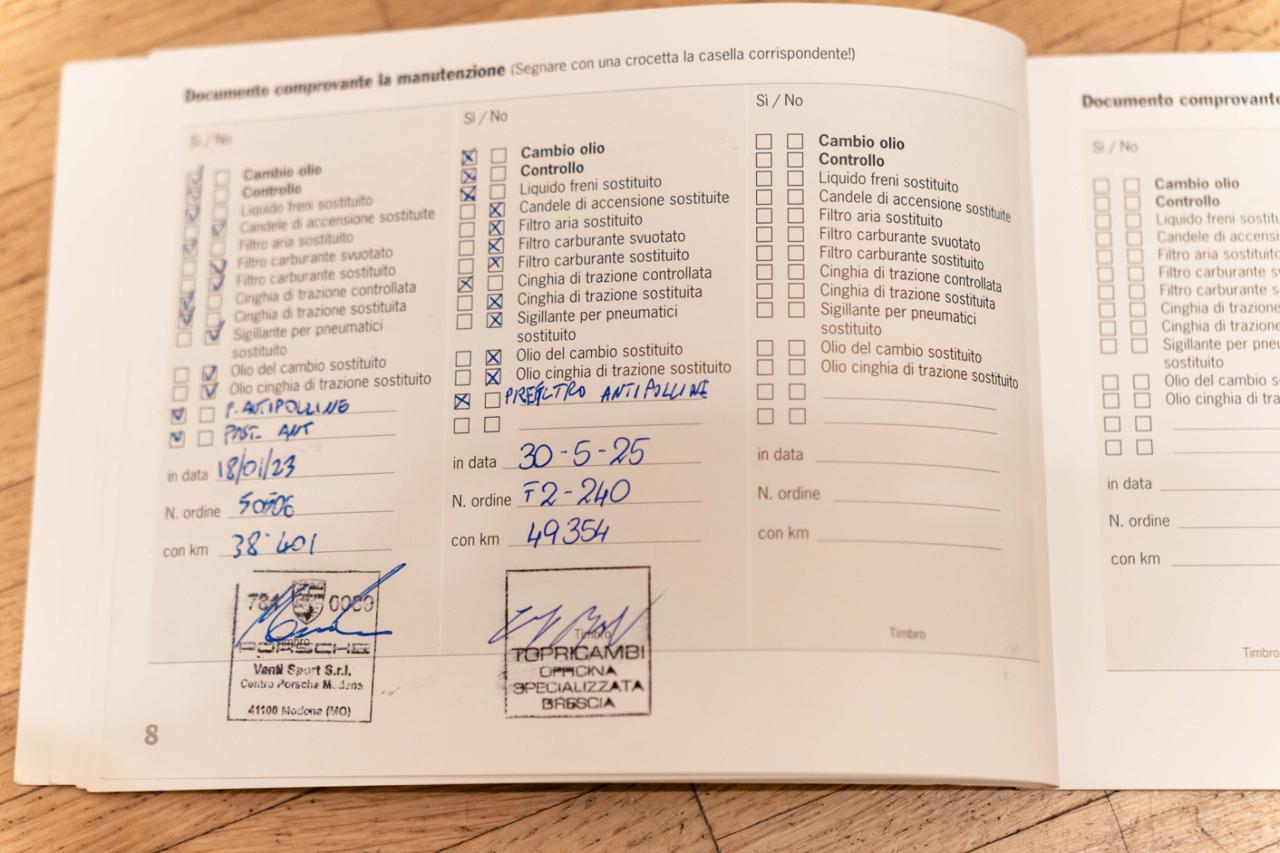 Documento comprovante la manutenzione (Segnare con una crocetta la casella corrispondente!)
Sì / No
Cambio olio
Controllo
Liquido freni sostituito
Candele di accensione sostituite
Filtro aria sostituito
Filtro carburante svuotato
Filtro carburante sostituito
Cinghia di trazione controllata
Cinghia di trazione sostituita
Sigillante per pneumatici
sostituito
Olio del cambio sostituito
Olio cinghia di trazione sostituito
F. ANTIPOLLINE
ANT
in data 18/01/23
N. ordine
con km 38.401
PORSCHE
Timbro
Sport S.r.l.
Centro Porsche
41100 Modena (MO)
8
Sì / No
Cambio olio
Controllo
Liquido freni sostituito
Candele di accensione sostituite
Filtro aria sostituito
Filtro carburante svuotato
Filtro carburante sostituito
Cinghia di trazione controllata
Cinghia di trazione sostituita
Sigillante per pneumatici
sostituito
Olio del cambio sostituito
Olio cinghia di trazione sostituito
PREFILTRO ANTIPOLLINE
in data 30-5-25
N. ordine F2-240
con km 49354
Timbro
TOPRICAMBI
OFFICINA
SPECIALIZZATA
BRESCIA
Sì / No
Cambio olio
Controllo
Liquido freni sostituito
Candele di accensione sostituite
Filtro aria sostituito
Filtro carburante svuotato
Filtro carburante sostituito
Cinghia di trazione controllata
Cinghia di trazione sostituita
Sigillante per pneumatici
sostituito
Olio del cambio sostituito
Olio cinghia di trazione sostituito
in data
N. ordine
con km
Timbro
Documento comprovante
Sì / No
Cambio olio
Controllo
Liquido freni sostitu
Candele di accensi
Filtro aria sostituito
Filtro carburante s
Filtro carburante s
Cinghia di trazione
Cinghia di trazione
Sigillante per pneu
sostituito
Olio del cambio s
Olio cinghia di tra
in data
N. ordine
con km
Timbro